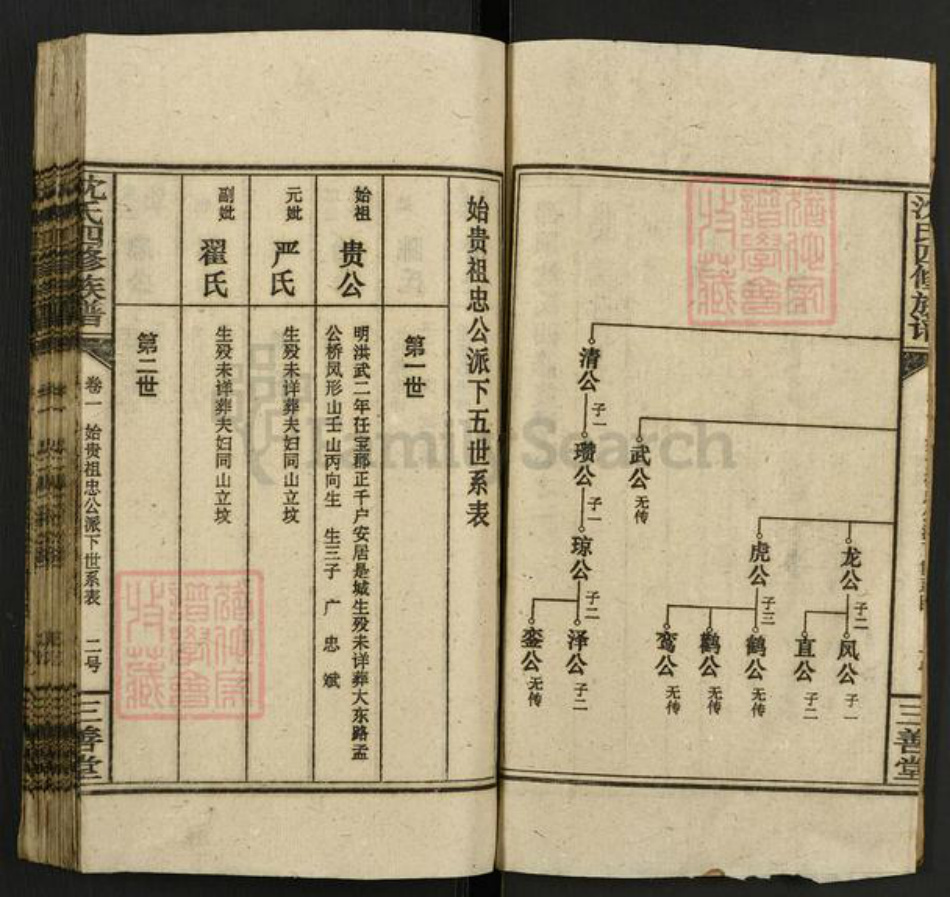 沈氏四修族谱
三善堂
龙公 子二
凤公 子一
直公 子二
虎公 子三
鹤公 无传
鹳公 无传
鸾公 无传
武公 无传
清公 子一
瓒公 子一
琼公 子二
泽公 子二
銮公 无传
始贵祖忠公派下五世系表
第一世
始祖 贵公
明洪武二年任宝郡正千户安居是城生殁未详葬大东路孟
公桥凤形山壬山丙向生 生三子 广 忠 斌
元妣 严氏
生殁未详葬夫妇同山立坟
副妣 翟氏
生殁未详葬夫妇同山立坟
第二世
沈氏四修族谱
卷一 始贵祖忠公派下世系表 二号
三善堂
FamilySearch